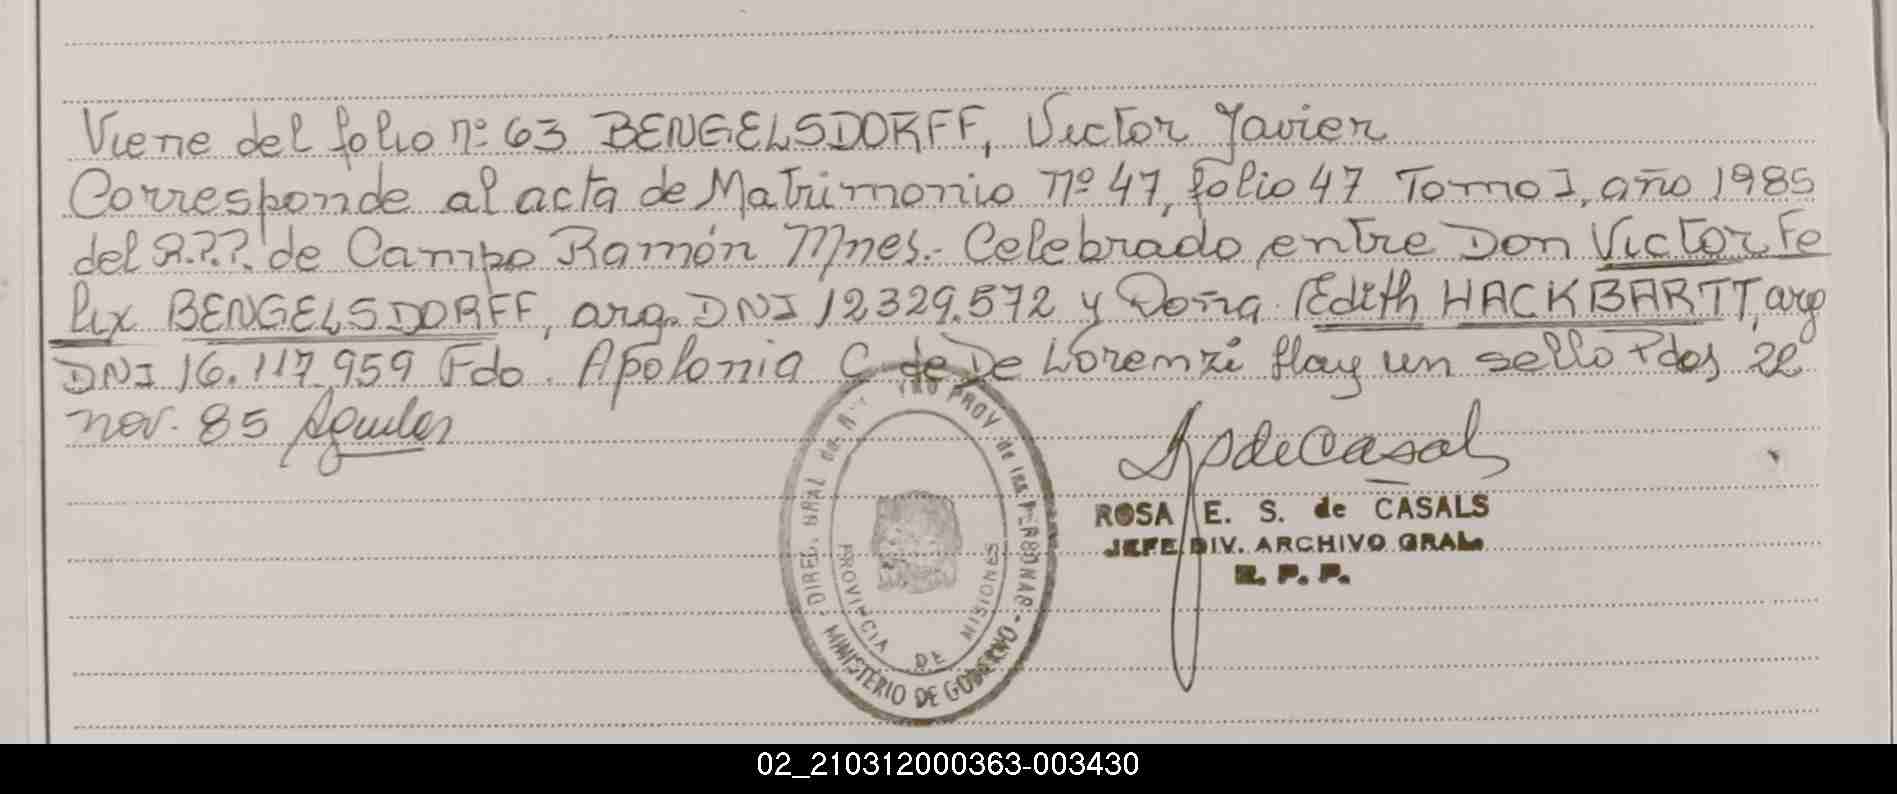 Viene del folio nº 63 BENGELSDORFF, Victor Javier
Corresponde al acta de Matrimonio nº 47, folio 47 Tomo I, año 1985
del R.P.P. de Campo Ramón Mnes.- Celebrado entre Don Victor Fe
lix BENGELSDORFF, arg. DNI 12329.572 y Doña Edith HACKBARTT, arg
DNI 16.117.959 Fdo. Apolonia C de De Lorenzi Hay un sello Pdas 22
nov. 85
DIREC. GRAL de PROV de las PERSONAS
PROVINCIA DE MISIONES
MINISTERIO DE GOBIERNO
ROSA E. S. de CASALS
JEFE DIV. ARCHIVO GRAL.
R. P. P.
02_210312000363-003430